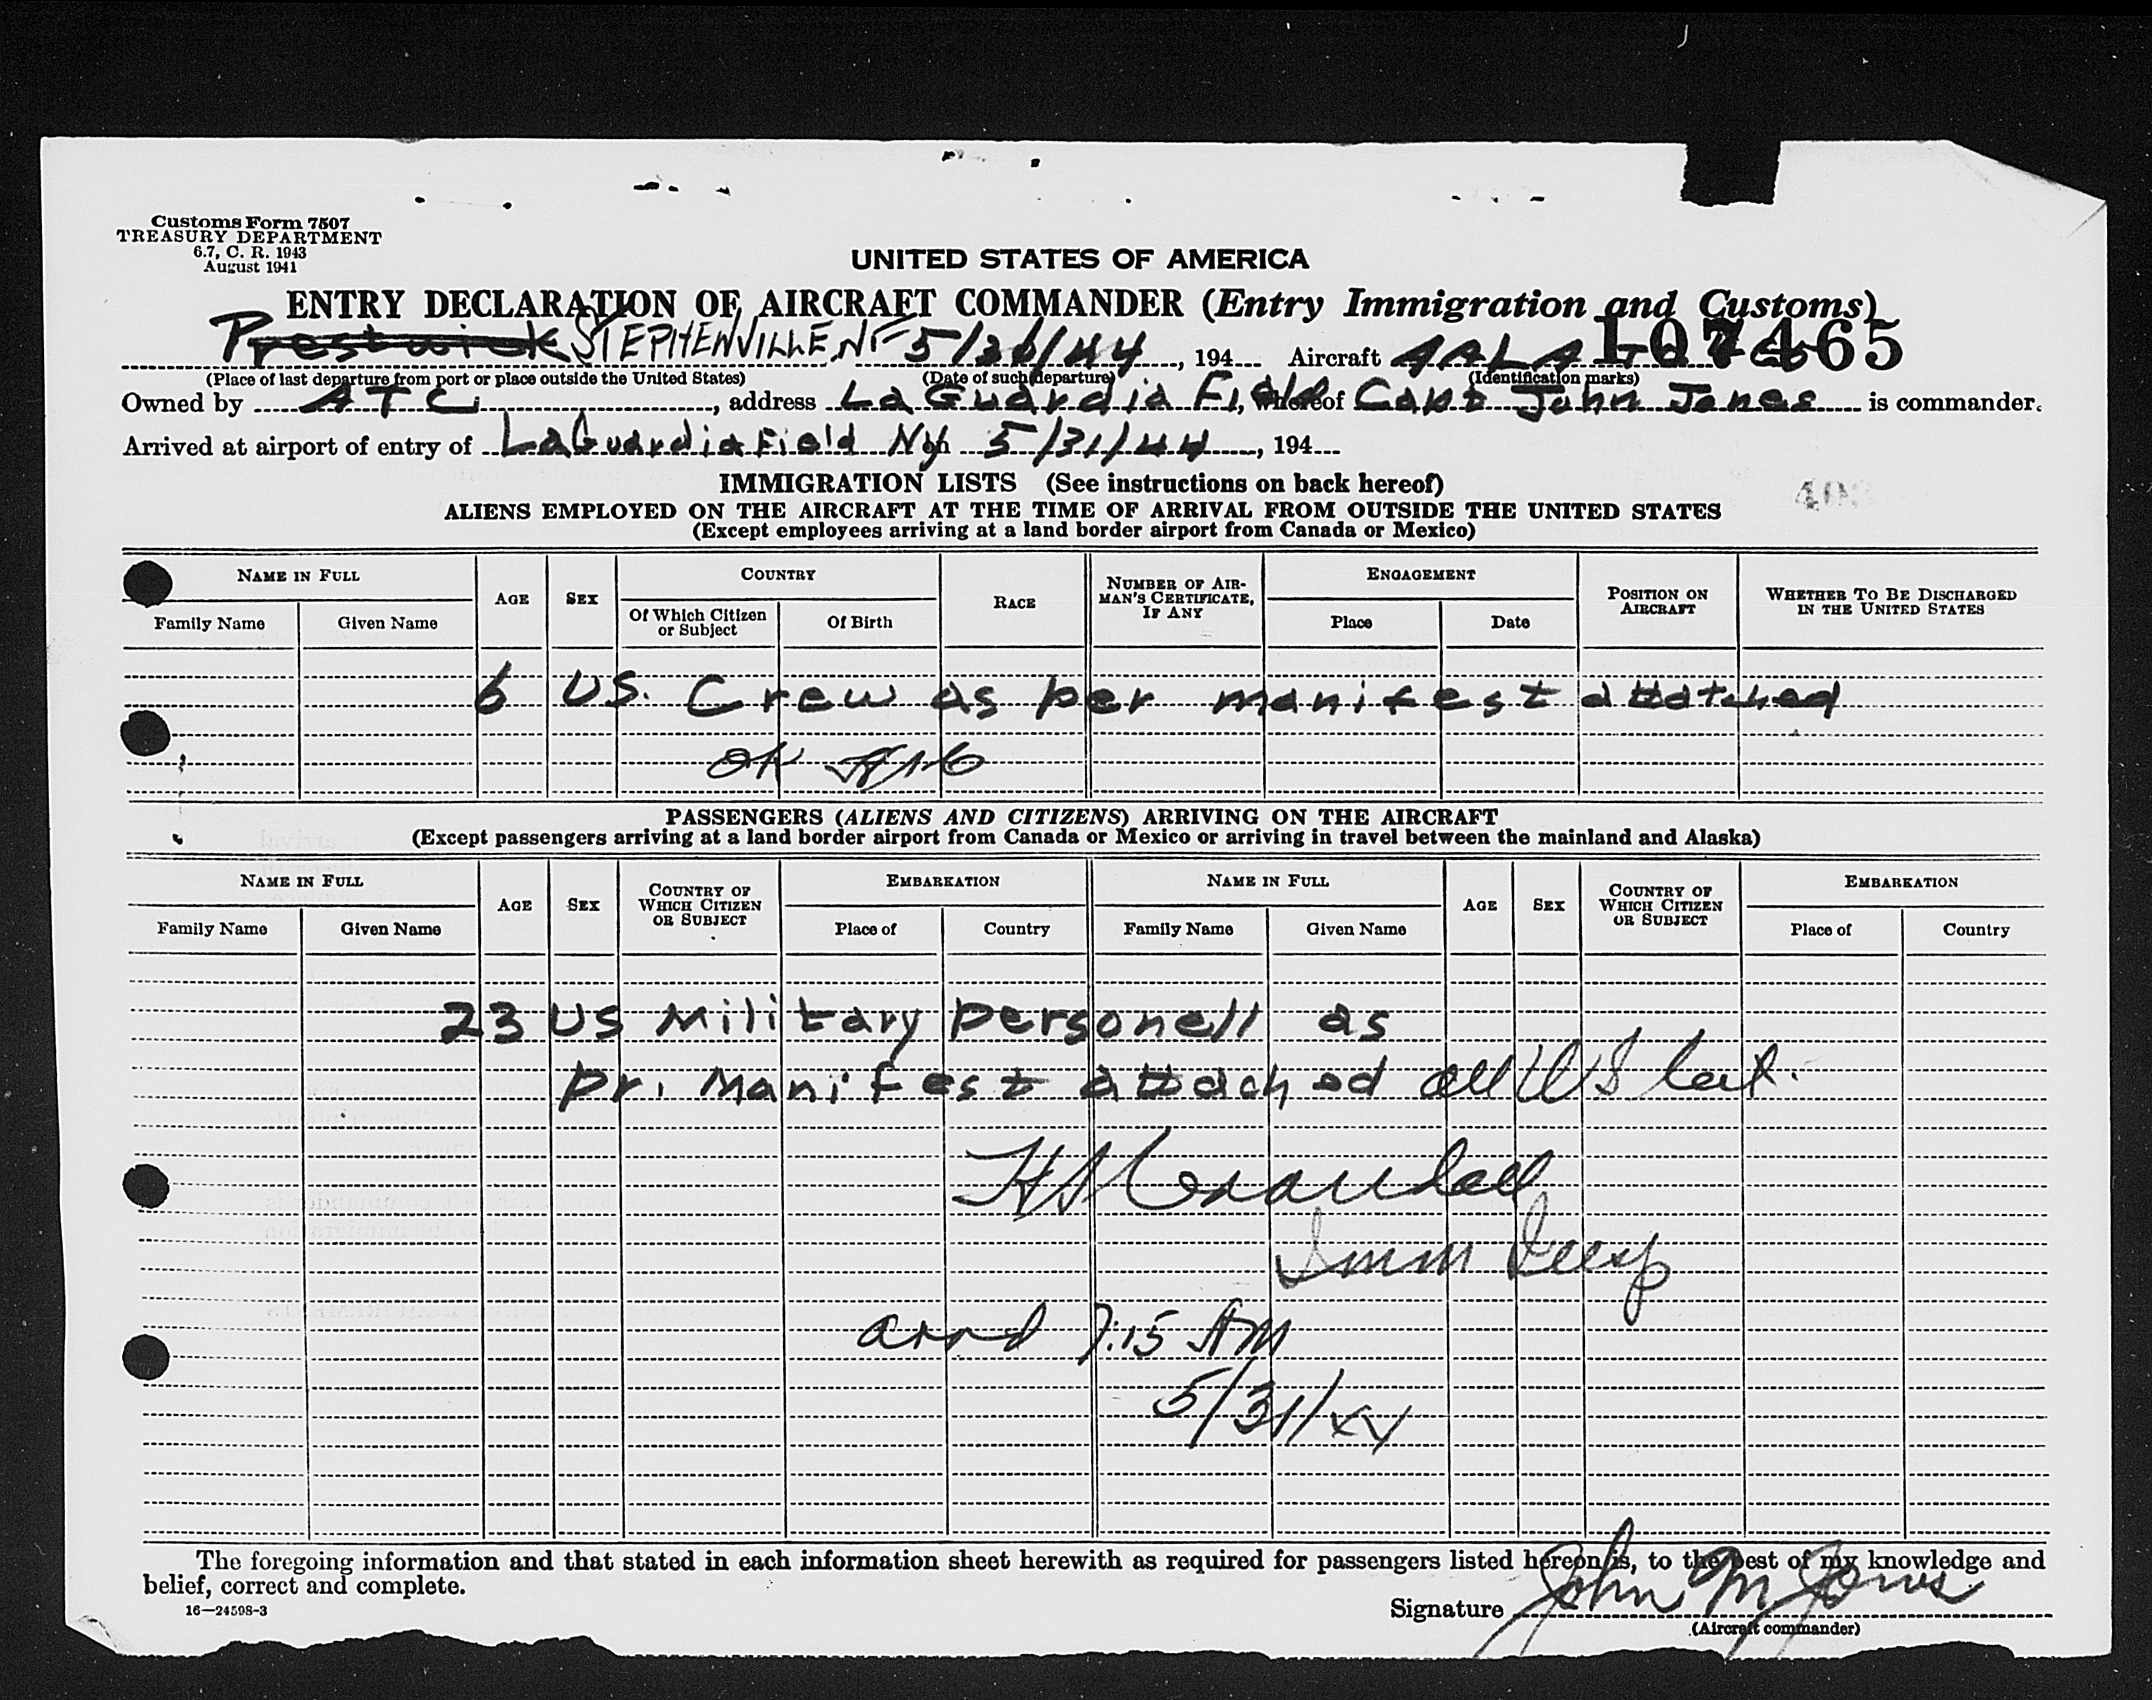 Customs Form 7507
TREASURY DEPARTMENT
6.7, C. R. 1943
August 1941
UNITED STATES OF AMERICA
ENTRY DECLARATION OF AIRCRAFT COMMANDER (Entry Immigration and Customs)
Prestwick STEPHENVILLE NF 5/30/44, 194 Aircraft 107465
(Place of last departure from port or place outside the United States) (Date of such departure) (Identification marks)
Owned by ATC, address LaGuardia Field, whereof Capt John Jones is commander.
Arrived at airport of entry of LaGuardia Field NY on 5/31/44, 194
IMMIGRATION LISTS (See instructions on back hereof)
ALIENS EMPLOYED ON THE AIRCRAFT AT THE TIME OF ARRIVAL FROM OUTSIDE THE UNITED STATES
(Except employees arriving at a land border airport from Canada or Mexico)
NAME IN FULL AGE SEX COUNTRY RACE NUMBER OF AIRMAN'S CERTIFICATE, IF ANY ENGAGEMENT POSITION ON AIRCRAFT WHETHER TO BE DISCHARGED IN THE UNITED STATES
Family Name Given Name Of Which Citizen or Subject Of Birth Place Date
6 US. Crew as per manifest attatched
OK
PASSENGERS (ALIENS AND CITIZENS) ARRIVING ON THE AIRCRAFT
(Except passengers arriving at a land border airport from Canada or Mexico or arriving in travel between the mainland and Alaska)
NAME IN FULL AGE SEX COUNTRY OF WHICH CITIZEN OR SUBJECT EMBARKATION NAME IN FULL AGE SEX COUNTRY OF WHICH CITIZEN OR SUBJECT EMBARKATION
Family Name Given Name Place of Country Family Name Given Name Place of Country
23 US Military personell as
pr. Manifest attached all US
Crandall
Imm Insp
arrd 7:15 AM
5/31/44
The foregoing information and that stated in each information sheet herewith as required for passengers listed hereon is, to the best of my knowledge and
belief, correct and complete.
16—24598-3
Signature John M Jones
(Aircraft commander)